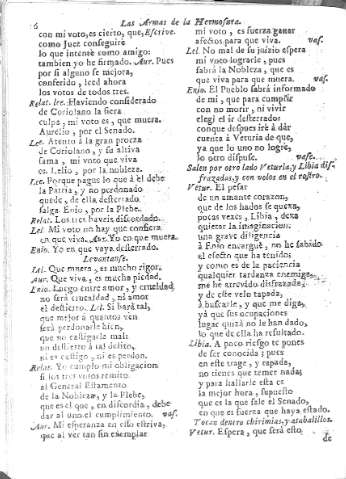 6
Las Armas de la Hermosura.
con mi voto, es cierto, que, Escrive.
como Juez conseguirè
lo que intentè como amigo:
tambien yo he firmado. Aur. Pues
por si alguno se mejora,
conferido, leed ahora
los votos de todos tres.
Relat. lee. Haviendo considerado
de Coriolano la fiera
culpa, mi voto es, que muera.
Aurelio, por el Senado.
Lee. Atento à la gran proeza
de Coriolano, y su altiva
fama, mi voto que viva
es. Lelio, por la nobleza.
Lee. Porque pague lo que à èl debe
la Patria, y no perdonado
quede, de ella desterrado
salga Enio, por la Plebe.
Relat. Los tres haveis discordado.
Lel. Mi voto no hay que confiera
en que viva. Aur. Yo en que muera.
Enio. Yo en que vaya desterrado.
Levantanse.
Lel. Que muera, es mucho rigor.
Aur. Que viva, es mucha piedad.
Enio. Luego entre amor, y crueldad
no serà crueldad, ni amor
el destierro. Lel. Si harà tal,
que mejor à quantos ven
serà perdonarle bien,
que no castigarle mal:
un destierro à tal delito,
ni es castigo, ni es perdon.
Relat. Yo cumplo mi obligacion
si los tres votos remito
al General Estamento
de la Nobleza, y la Plebe,
que es el que, en discordia, debe
dar al uno el cumplimiento. vas.
Aur. Mi esperanza en esto estriva,
que al ver tan sin exemplar
mi voto, es fuerza ganar
afectos para que viva. vas.
Lel. No mal de su juizio espera
mi voto lograrse, pues
sabrà la Nobleza, que es
que viva para que muera. vas.
Enio. El Pueblo sabrà informado
de mi, que para cumplir
con no morir, ni vivir
elegì el ir desterrados
conque despues irè à dàr
cuenta à Veturia de que,
ya que lo uno no logrè,
lo otro dispuse. vase.
Salen por otro lado Veturia, y Libia dis-
frazadas, y con velos en el rostro.
Vetur. El pesar
de un amante corazon,
que de los hados se quexa,
pocas vezes, Libia, dexa
quieta la imaginacion:
una grave diligencia
à Enio encarguè, no he sabido
el efecto que ha tenido;
y como es de la paciencia
qualquier tardanza enemiga,
me he atrevido disfrazada,
y de este velo tapada,
à buscarle, y que me diga,
yà que sus ocupaciones
lugar quizà no le han dado,
lo que de ella ha resultado.
Libia. A poco riesgo te pones
de ser conocida; pues
en este trage, y tapada,
no tienes que temer nada;
y para hallarle esta es
la mejor hora, supuesto
que es la que sale el Senado,
en que es fuerza que haya estado.
Tocan dentro chirimias, y atabalillos.
Vetur. Espera, que serà esto
de